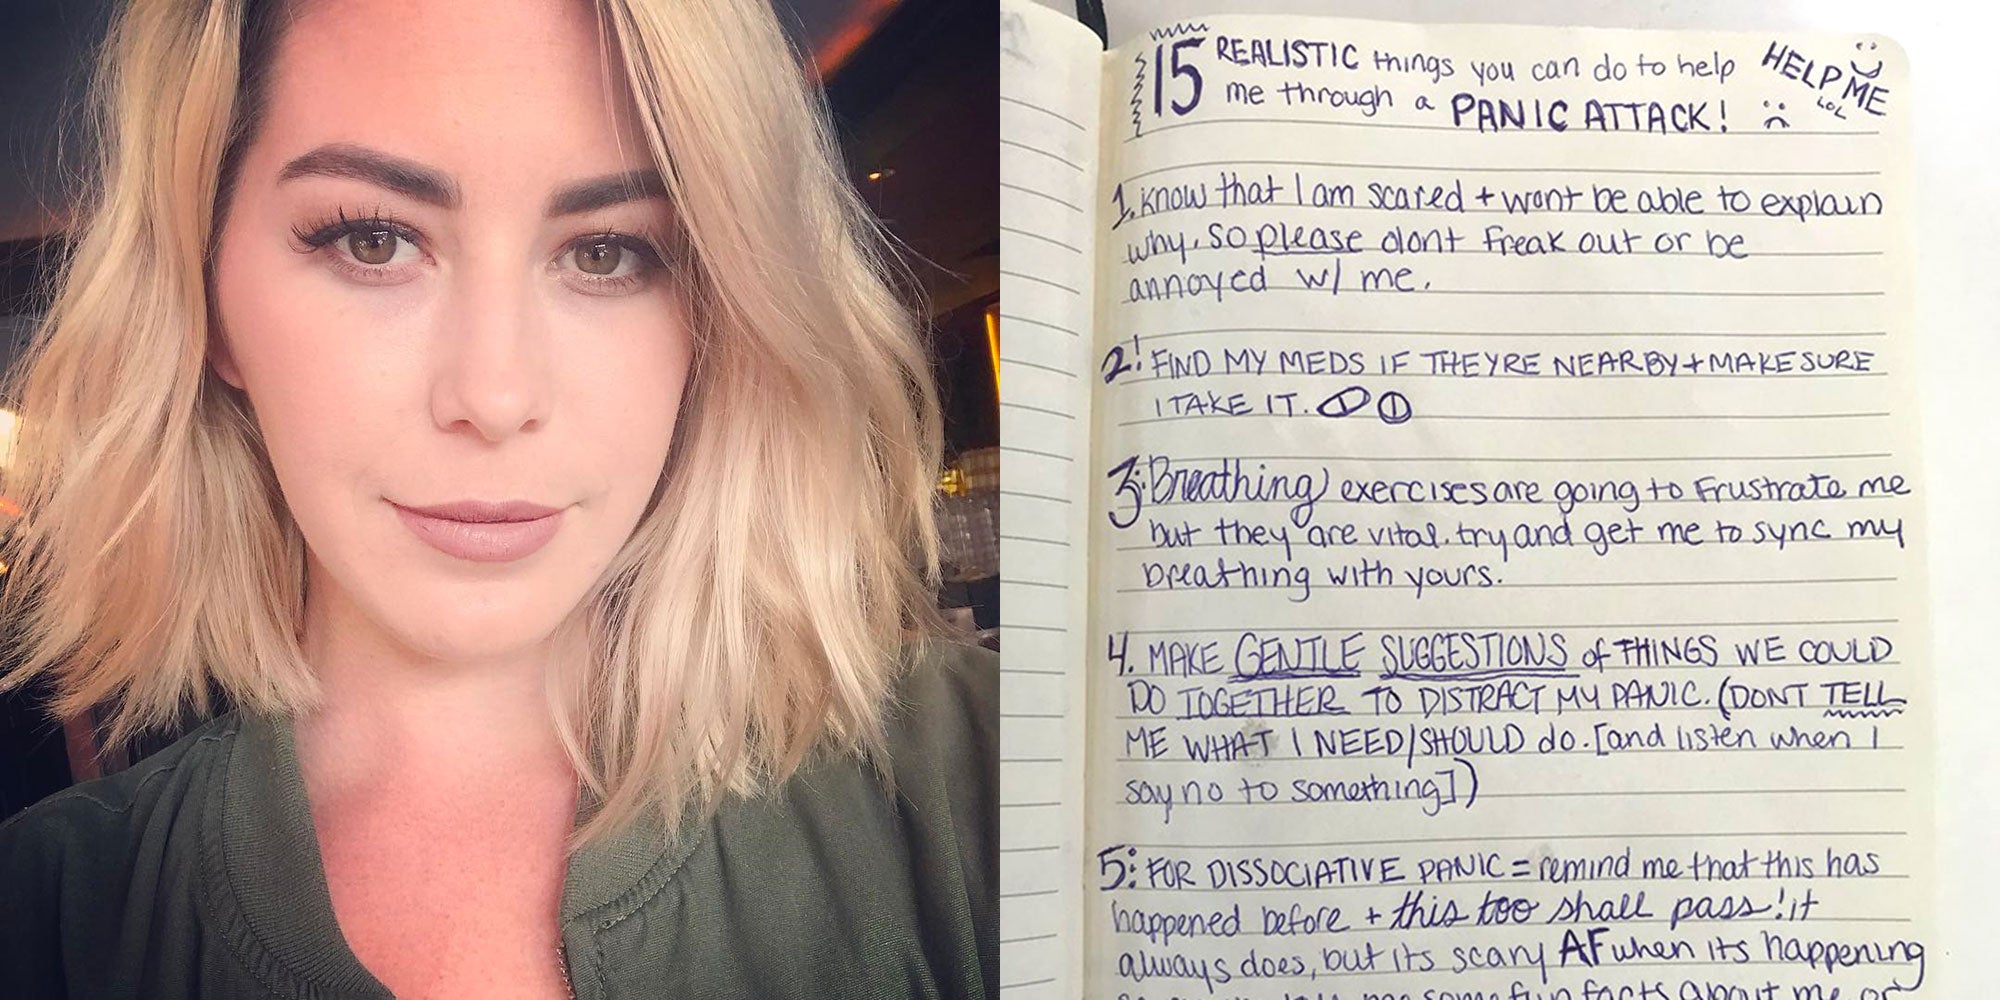 15 REALISTIC things you can do to help
me through a PANIC ATTACK!
HELP ME
LOL
1. Know that I am scared + wont be able to explain
why, so please dont freak out or be
annoyed w/ me.
2! FIND MY MEDS IF THEYRE NEARBY + MAKE SURE
I TAKE IT.
3: Breathing exercises are going to frustrate me
but they are vital. try and get me to sync my
breathing with yours.
4. MAKE GENTLE SUGGESTIONS of THINGS WE COULD
DO TOGETHER TO DISTRACT MY PANIC. (DONT TELL
ME WHAT I NEED/SHOULD do. [and listen when I
say no to something])
5: FOR DISSOCIATIVE PANIC = remind me that this has
happened before + this too shall pass! it
always does, but its scary AF when its happening
some fun facts about me or